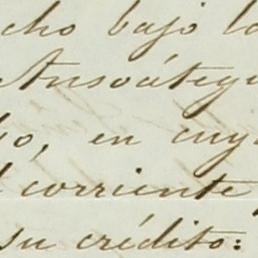 cho bajo la
Ansoátegui
bo, en cuy
l corriente
su crédito: